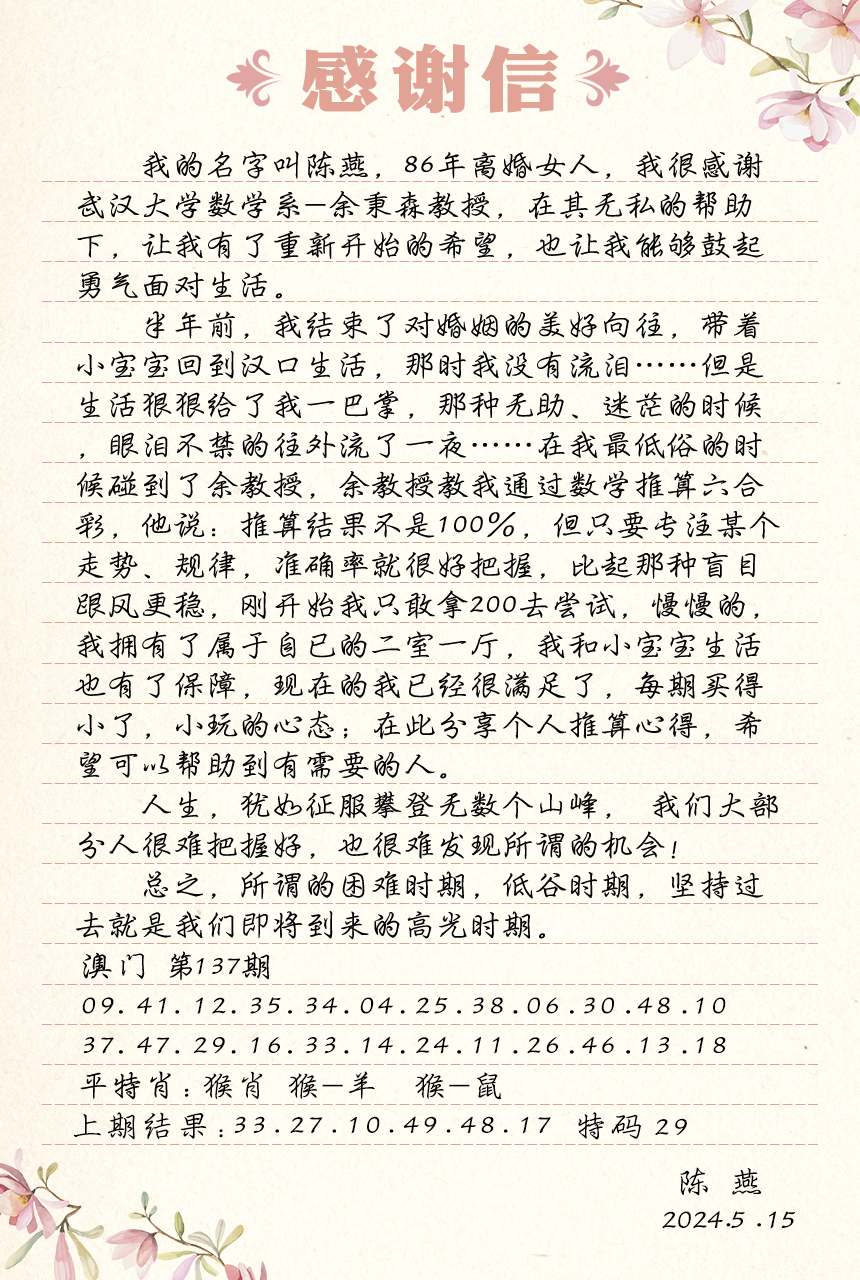 感谢信
我的名字叫陈燕，86年离婚女人，我很感谢
武汉大学数学系-余秉森教授，在其无私的帮助
下，让我有了重新开始的希望，也让我能够鼓起
勇气面对生活。
半年前，我结束了对婚姻的美好向往，带着
小宝宝回到汉口生活，那时我没有流泪……但是
生活狠狠给了我一巴掌，那种无助、迷茫的时候
，眼泪不禁的往外流了一夜……在我最低俗的时
候碰到了余教授，余教授教我通过数学推算六合
彩，他说：推算结果不是100%，但只要专注某个
走势、规律，准确率就很好把握，比起那种盲目
跟风更稳，刚开始我只敢拿200去尝试，慢慢的，
我拥有了属于自己的二室一厅，我和小宝宝生活
也有了保障，现在的我已经很满足了，每期买得
小了，小玩的心态；在此分享个人推算心得，希
望可以帮助到有需要的人。
人生，犹如征服攀登无数个山峰， 我们大部
分人很难把握好，也很难发现所谓的机会！
总之，所谓的困难时期，低谷时期，坚持过
去就是我们即将到来的高光时期。
澳门 第137期
09.41.12.35.34.04.25.38.06.30.48.10
37.47.29.16.33.14.24.11.26.46.13.18
平特肖：猴肖 猴-羊 猴-鼠
上期结果：33.27.10.49.48.17 特码 29
陈 燕
2024.5 .15